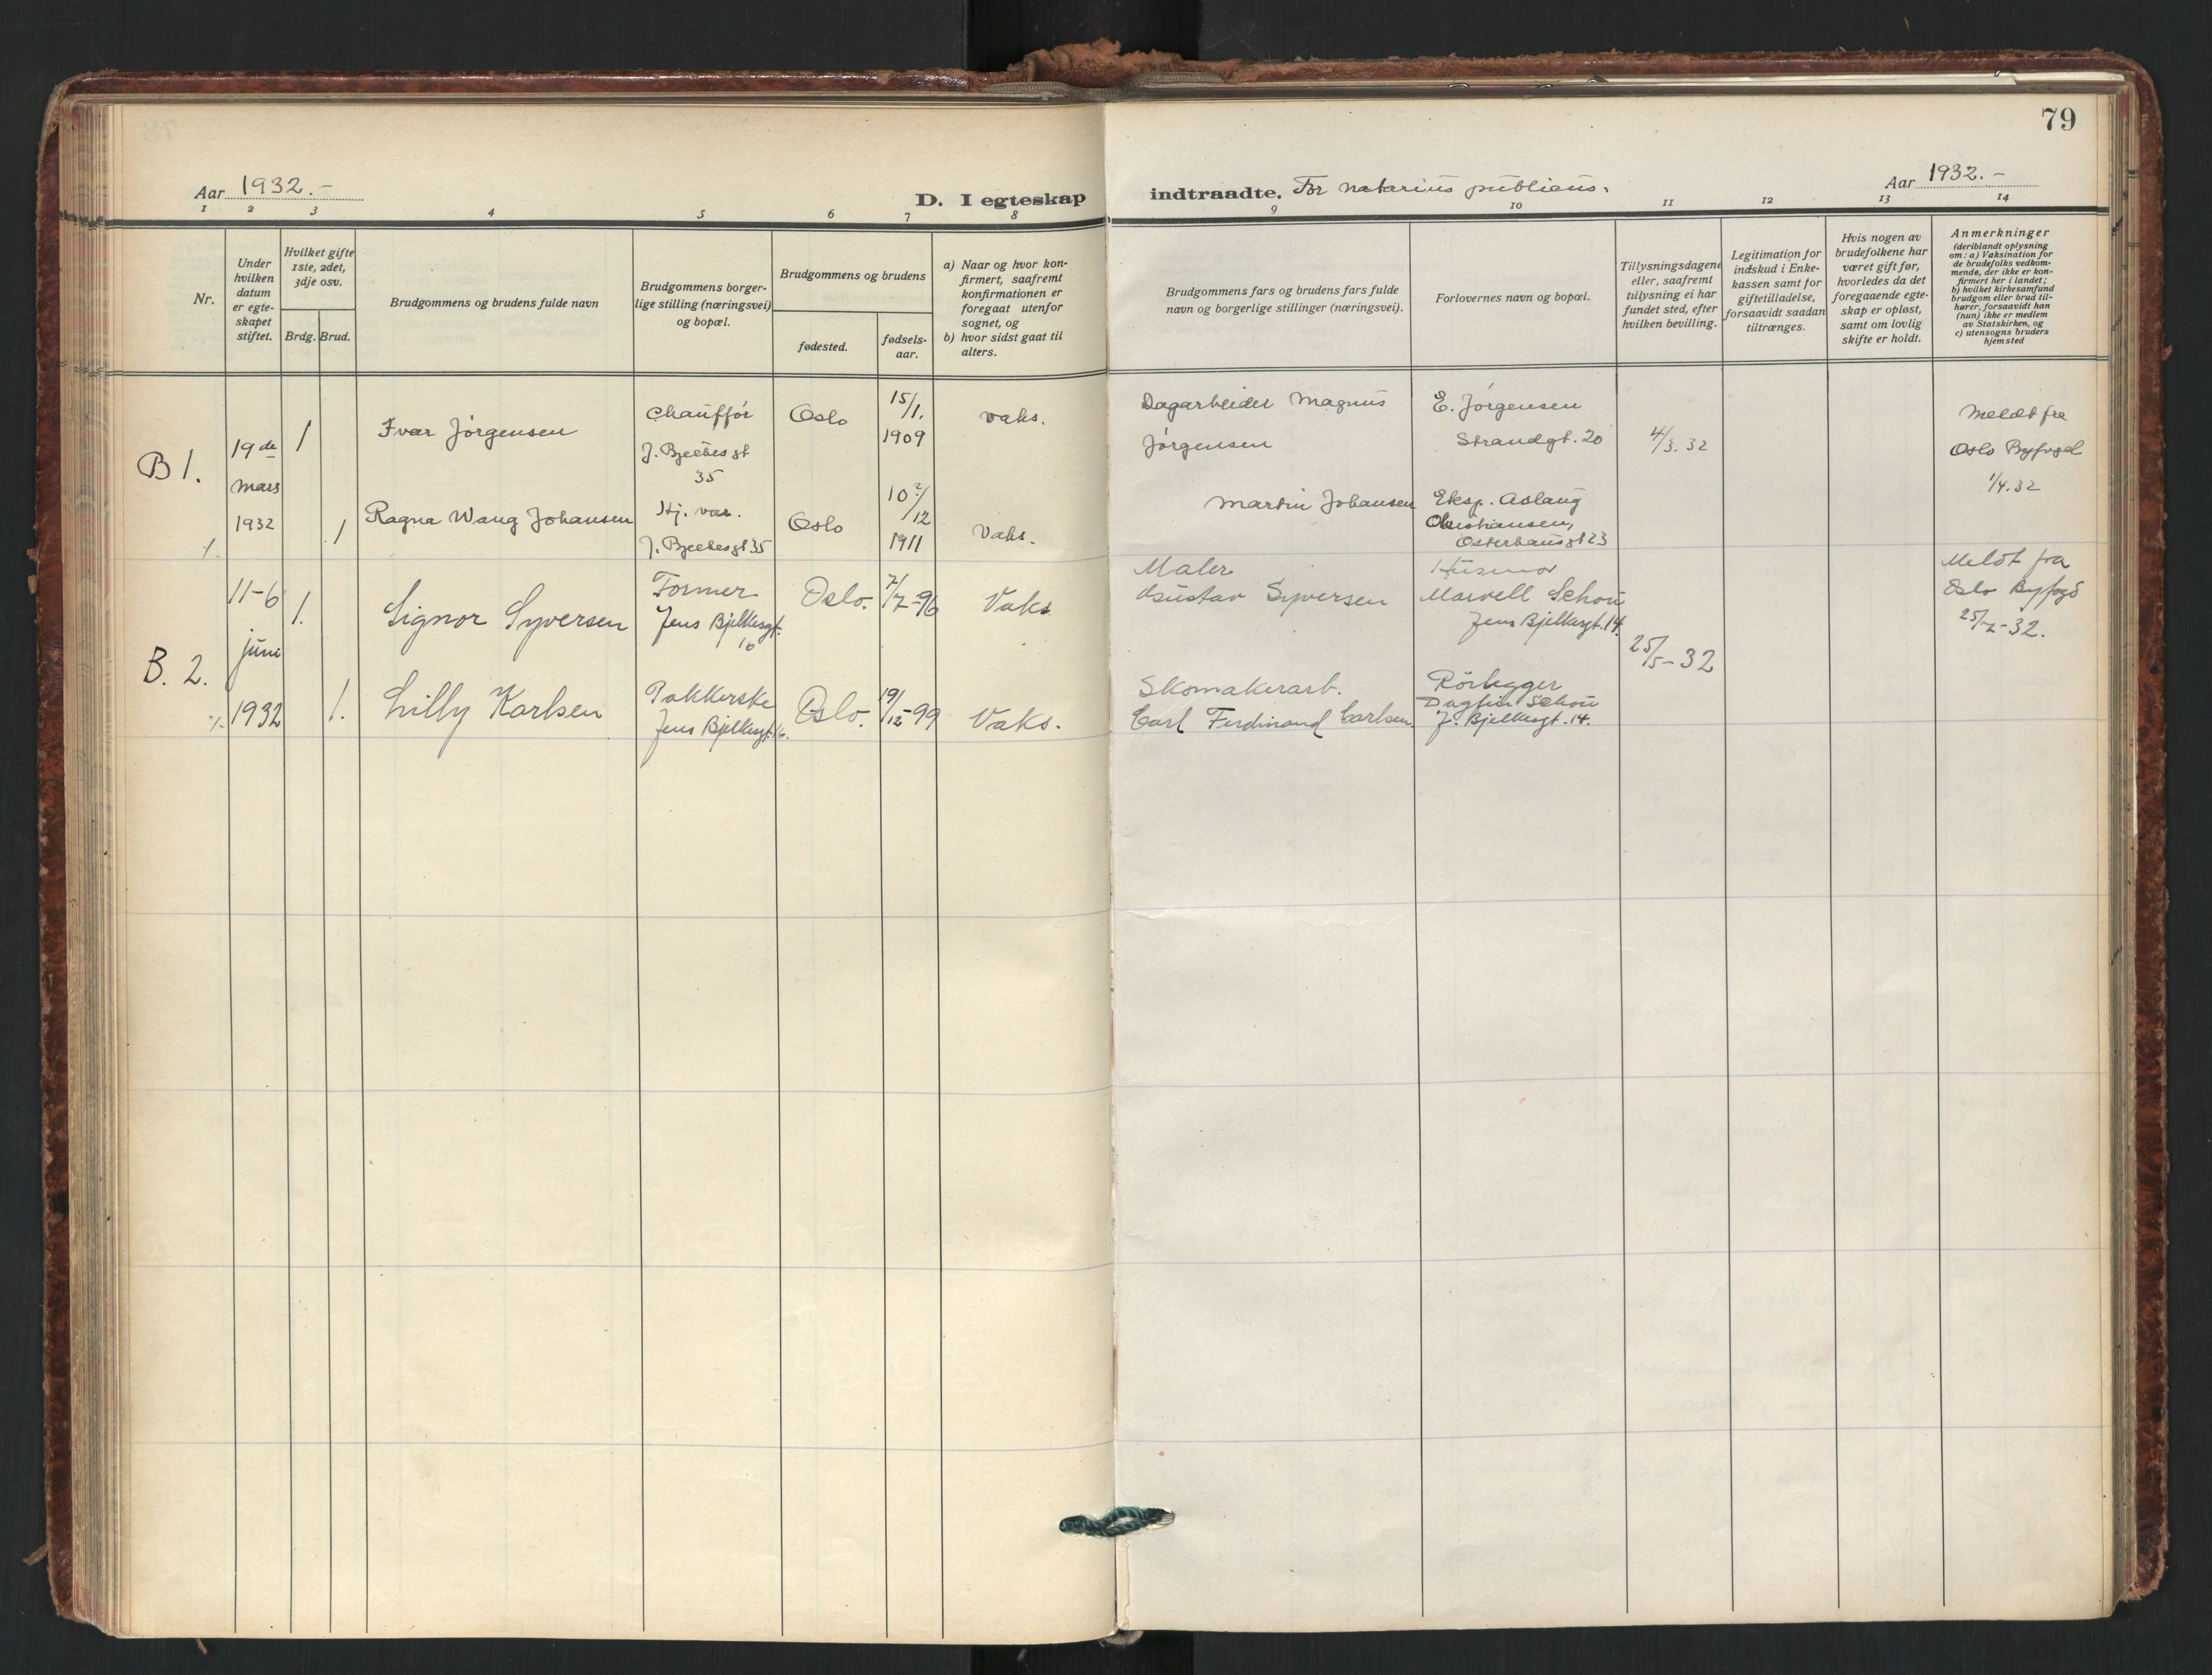 79
Aar 1932.-
D. I egteskap indtraadte. For notarius publicus.
Aar 1932.-
1 2 3 4 5 6 7 8 9 10 11 12 13 14
Nr.
Under hvilken datum er egte-skapet stiftet.
Hvilket gifte 1ste, 2det, 3dje osv.
Brdg. Brud.
Brudgommens og brudens fulde navn
Brudgommens borger-
lige stilling (næringsvei)
og bopæl.
Brudgommens og brudens
fødested.
fødsels-
aar.
a) Naar og hvor kon-
firmert, saafremt
konfirmationen er
foregaat utenfor
sognet, og
b) hvor sidst gaat til
alters.
Brudgommens fars og brudens fars fulde
navn og borgerlige stillinger (næringsvei).
Forlovernes navn og bopæl.
Tillysningsdagene
eller, saafremt
tillysning ei har
fundet sted, efter
hvilken bevilling.
Legitimation for
indskud i Enke-
kassen samt for
giftetilladelse,
forsaavidt saadan
tiltrænges.
Hvis nogen av
brudefolkene har
været gift før,
hvorledes da det
foregaaende egte-
skap er opløst,
samt om lovlig
skifte er holdt.
Anmerkninger
(deriblandt oplysning
om: a) Vaksination for
de brudefolks vedkom-
mende, der ikke er kon-
firmert her i landet;
b) hvilket kirkesamfund
brudgom eller brud til-
hører, forsaavidt han
(hun) ikke er medlem
av Statskirken, og
c) utensogns bruders
hjemsted
B 1.
19de
mars
1932
1
Ivar Jørgensen
Chauffør
35
Oslo
15/1.
1909
Vaks.
Dagarbeider Magnus
Jørgensen
E. Jørgensen
Strandgt. 20
4/3. 32
Meldt fra
Oslo Byfogd
1/4.32
1
Ragna Wang Johansen
Hj. vær.
Oslo
12
1911
Vaks.
Martin Johansen
Eksp. Aslaug
Christiansen,
Osterhausgt 23
B. 2.
11-6
juni
1932
1.
Signor Syversen
Former
Jens Bjelkesgt.
16
Oslo.
7/7-96
Vaks
Maler
Gustav Syversen
Husmor
Marvell Schou
Jens Bjelkesgt. 14.
25/5-32
Meldt fra
Oslo Byfogd
25/7-32.
1.
Lilly Karlsen
Pakkerske
Jens Bjelkesgt. 16.
Oslo.
19/12-99
Vaks.
Skomakerarb.
Carl Ferdinand Carlsen
Rørlegger
Dagfin Schou
J. Bjelkesgt. 14.